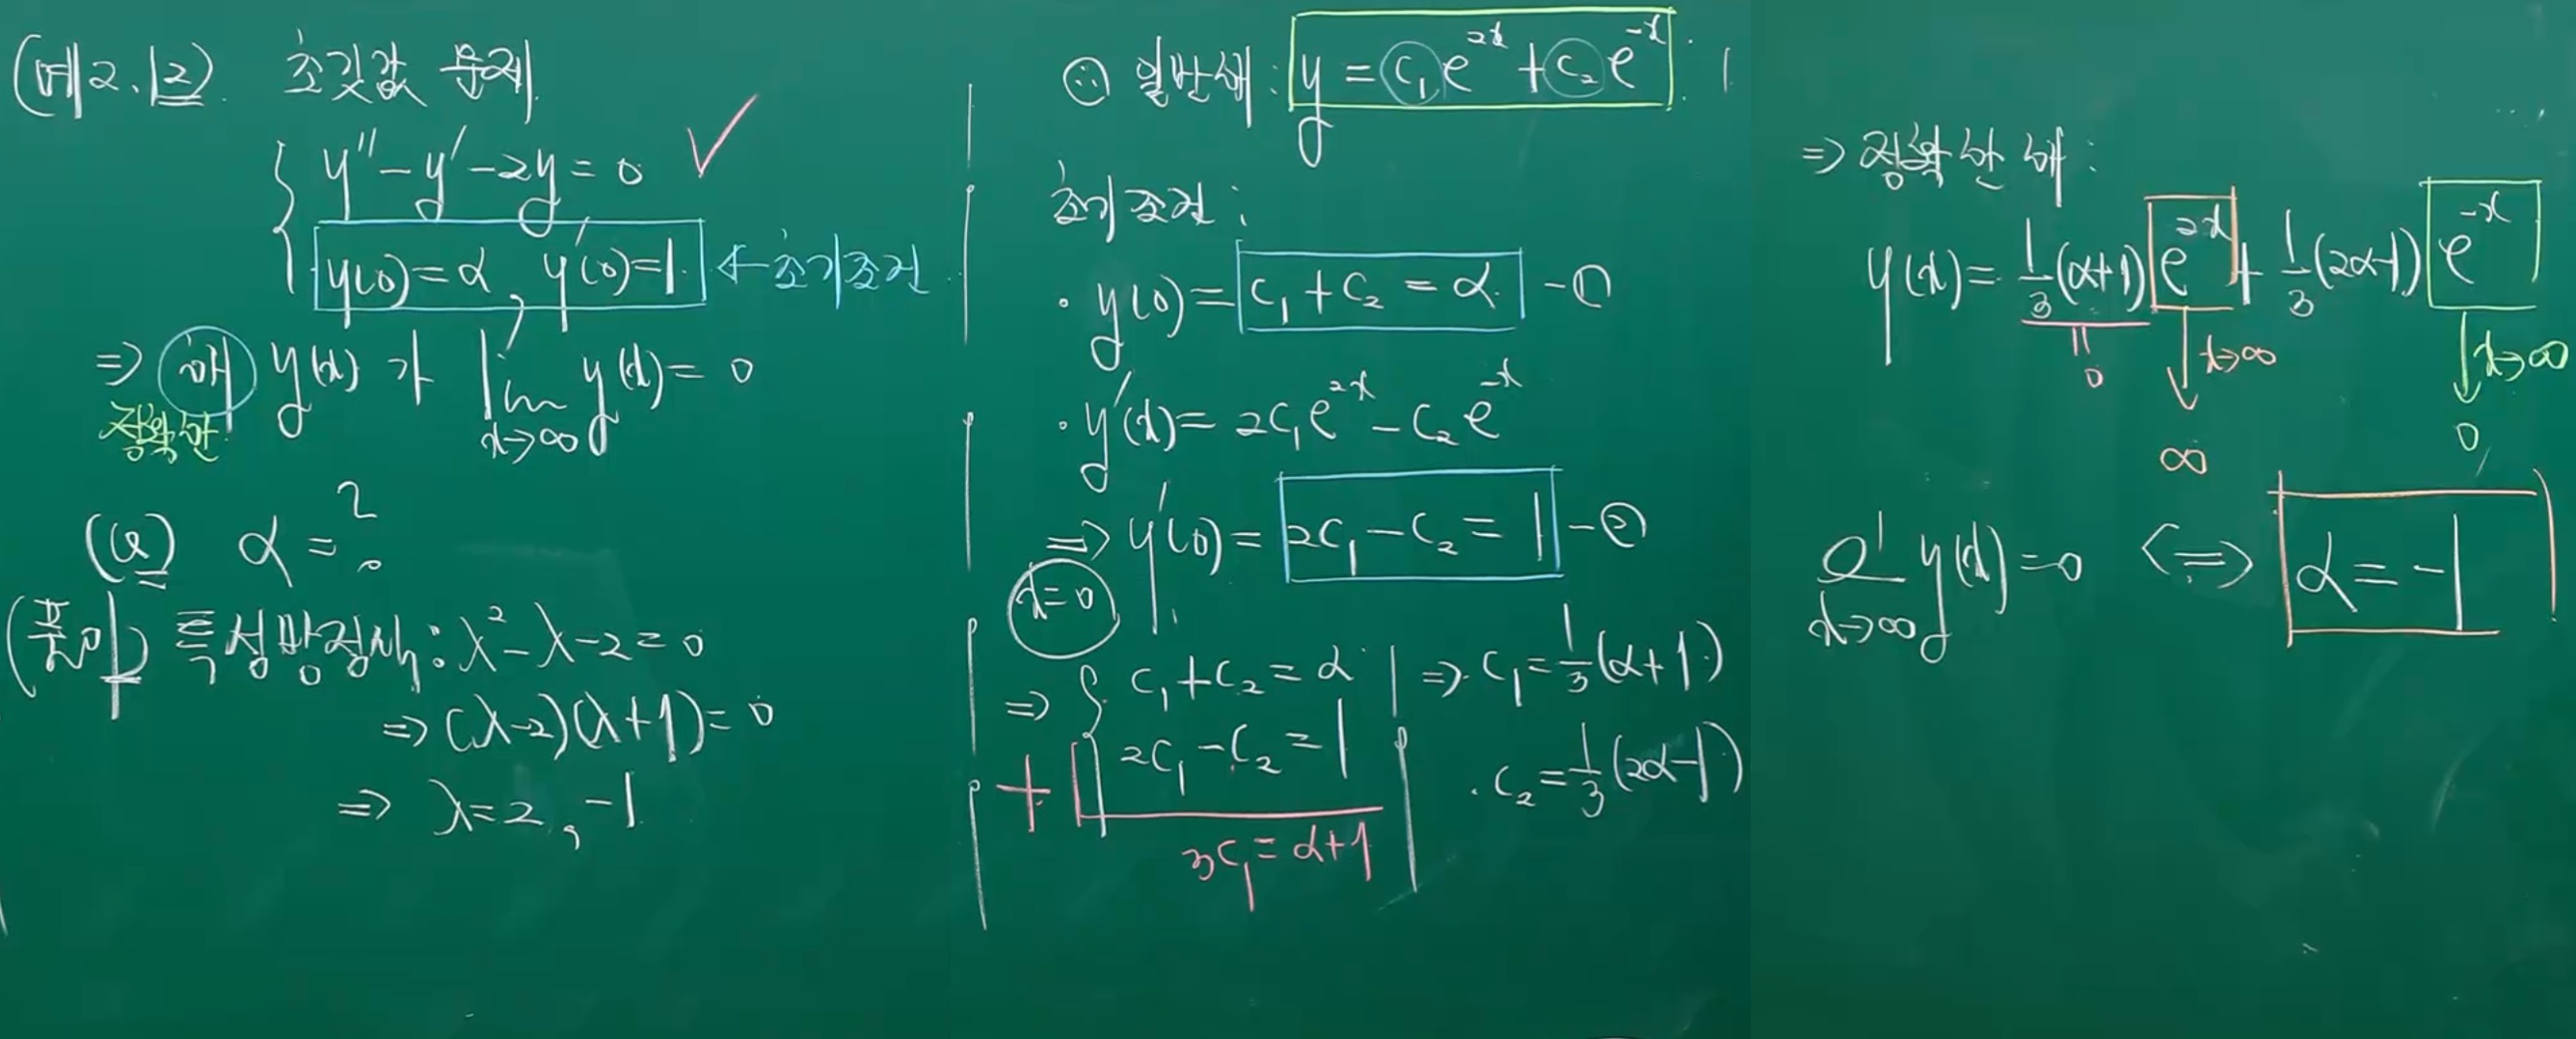 (예2.12) 초깃값 문제
y'' - y' - 2y = 0 ✓
y(0) = α, y'(0) = 1. ← 초기조건
⇒ 해 y(x)가 lim y(x) = 0
정확한 x→∞
(Q) α = ?
(풀이) 특성방정식: λ² - λ - 2 = 0
⇒ (λ-2)(λ+1) = 0
⇒ λ = 2, -1
∴ 일반해: y = c₁e^{2x} + c₂e^{-x}.
초기조건:
· y(0) = c₁ + c₂ = α. - ①
· y'(x) = 2c₁e^{2x} - c₂e^{-x}
⇒ y'(0) = 2c₁ - c₂ = 1 - ②
x=0
⇒ { c₁ + c₂ = α ⇒ c₁ = 1/3(α+1)
+ 2c₁ - c₂ = 1 · c₂ = 1/3(2α-1)
3c₁ = α+1
⇒ 정확한 해:
y(x) = 1/3(α+1) e^{2x} + 1/3(2α-1) e^{-x}
= 0 ↓ x→∞ ↓ x→∞
∞ 0
lim y(x) = 0 ⇔ α = -1
x→∞